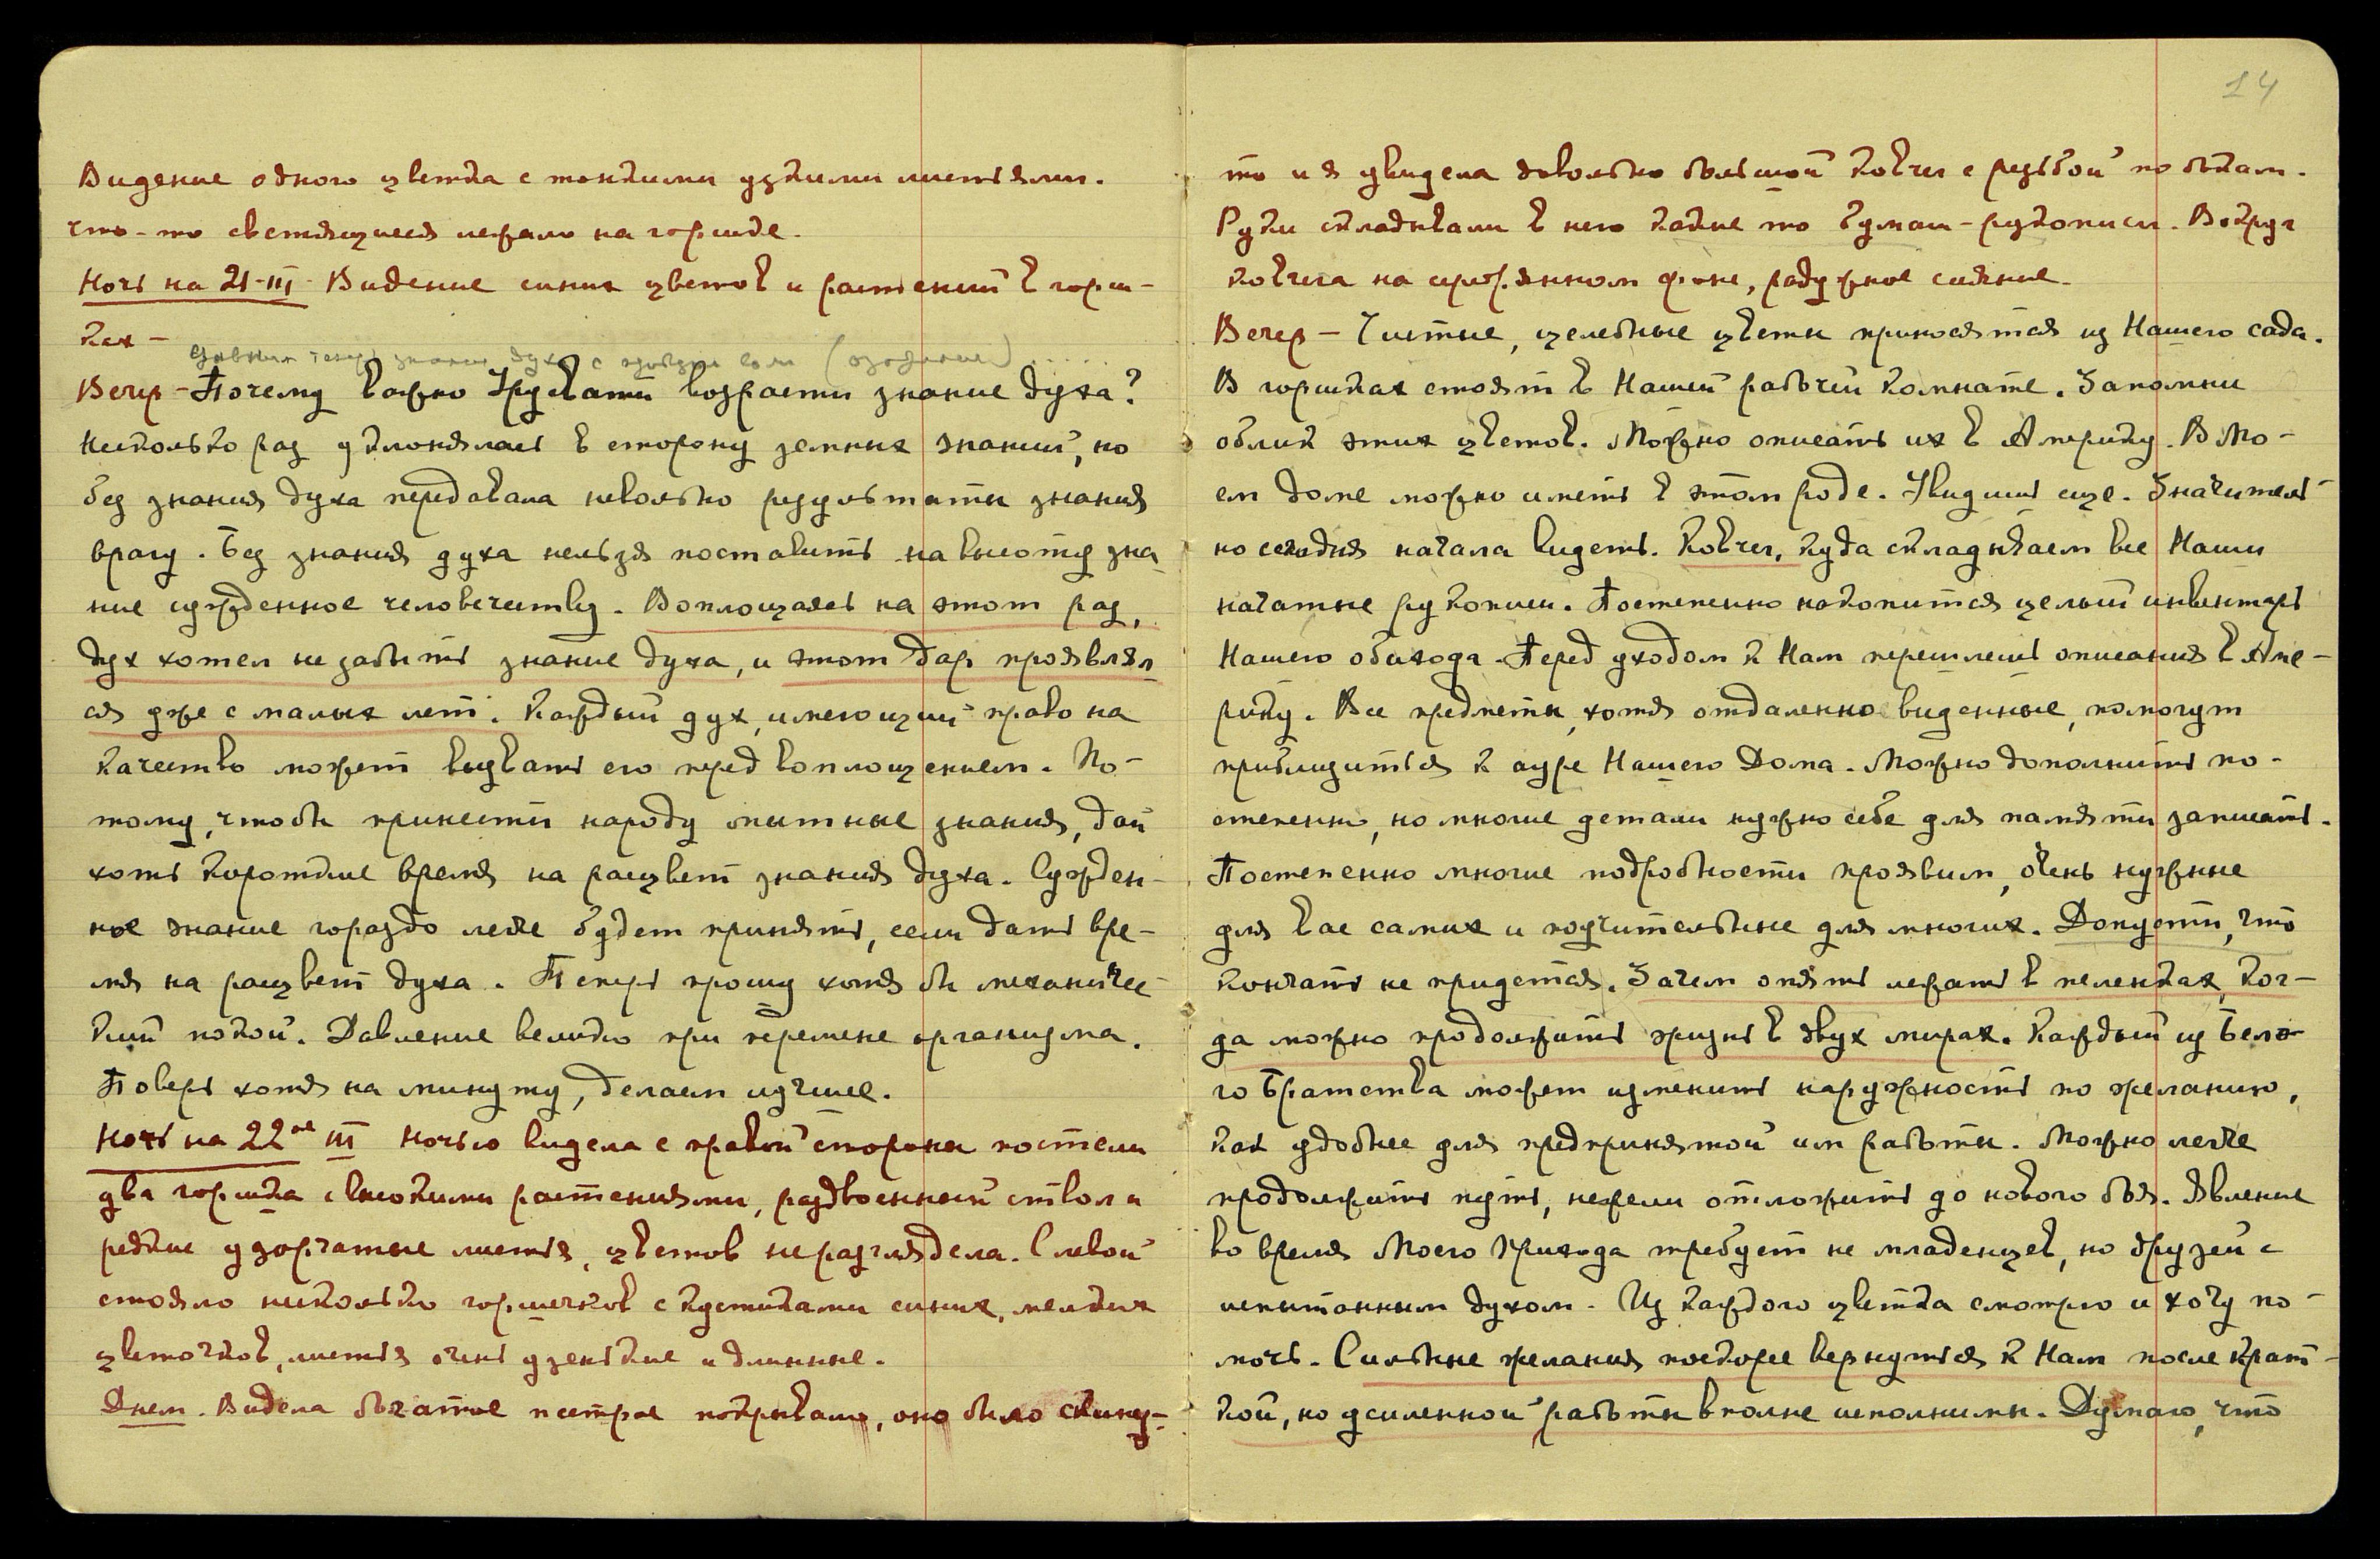 Видение одного цветка с тонкими узкими листьями.
что-то светящееся лежало на горшке.
Ночь на 21-III - Видение синих цветов и растений в горш-
ках -
Вечер - Почему важно Урусвати возрасти знание духа?
Несколько раз уклонялась в сторону земных знаний, но
без знания духа передавала невольно результаты знания
врагу. Без знания духа нельзя поставить на высоту зна
ние сужденное человечеству. Воплощаясь на этот раз,
дух хотел не забыть знание духа, и этот дар проявлял
ся уже с малых лет. Каждый дух, имеющий право на
качество может вызвать его перед воплощением. По-
тому, чтобы принести народу опытные знания, дай
хоть короткие время на расцвет знания духа. Сужден-
ное знание гораздо легче будет принять, если дать вре-
мя на расцвет духа. Теперь прошу хотя бы механичес-
кий покой. Давление велико при перемене организма.
Поверь хотя на минуту, делаем лучшее.
Ночь на 22ое III Ночью видела с правой стороны постели
два горшка с высокими растениями, раздвоенный ствол и
редкие узорчатые листья, цветов не разглядела. С левой
стояло несколько горшечков с кустиками синих, мелких
цветочков, листья очень узенькие и длинные.
Днем. Видела богатое пестрое покрывало, оно было скину-
14
то и я увидела довольно большой ковчег с резьбой по бокам.
Руки складывали в него какие то бумаги - рукописи. Вокруг
ковчега на серебрянном фоне, радужное сияние.
Вечер - Чистые, целебные цветы приносятся из Нашего сада.
В горшках стоят в Нашей рабочей комнате. Запомни
облик этих цветов. Можно описать их в Америку. В Мо-
ем доме можно иметь в этом роде. Увидишь еще. Значитель-
но сегодня начала видеть. Ковчег, куда складываем все Наши
начатые рукописи. Постепенно накопится целый инвентарь
Нашего обихода. Перед уходом к Нам перешлешь описания в Аме-
рику. Все предметы, хотя отдаленно виденные, помогут
приблизиться к ауре Нашего Дома. Можно дополнить по-
степенно, но многие детали нужно себе для памяти записать.
Постепенно многие подробности проявим, очень нужные
для вас самих и поучительные для многих. Допусти, что
кончать не придется. Зачем опять лежать в пеленках, ког-
да можно продолжить жизнь в двух мирах. Каждый из Бело-
го Братства может изменить наружность по желанию,
как удобнее для предпринятой им работы. Можно легче
продолжить путь, нежели отложить до нового боя. Явление
во время Моего Прихода требует не младенцев, но друзей с
испытанным духом. Из каждого цветка смотрю и хочу по-
мочь. Сильные желания поскорее вернуться к Нам после крат-
кой, но усиленной работы вполне исполнимы. Думаю, что